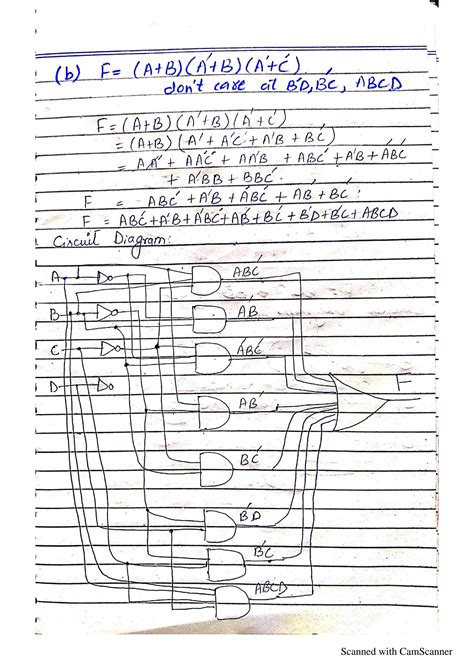 (b) F = (A+B)(A'+B)(A'+C')
don't care at B'D, B'C', ABCD
F = (A+B)(A'+B)(A'+C')
= (A+B)(A' + A'C' + A'B + BC')
= AA' + AA'C' + AA'B + ABC' + A'B + A'BC'
+ A'BB + BBC'.
F = ABC' + A'B + A'BC' + AB + BC'.
F = ABC' + A'B + A'BC' + AB' + BC' + B'D + B'C' + ABCD
Circuit Diagram:
A
ABC'
B
A'B
C
A'BC'
F
D
AB'
BC'
B'D
B'C'
ABCD
Scanned with CamScanner